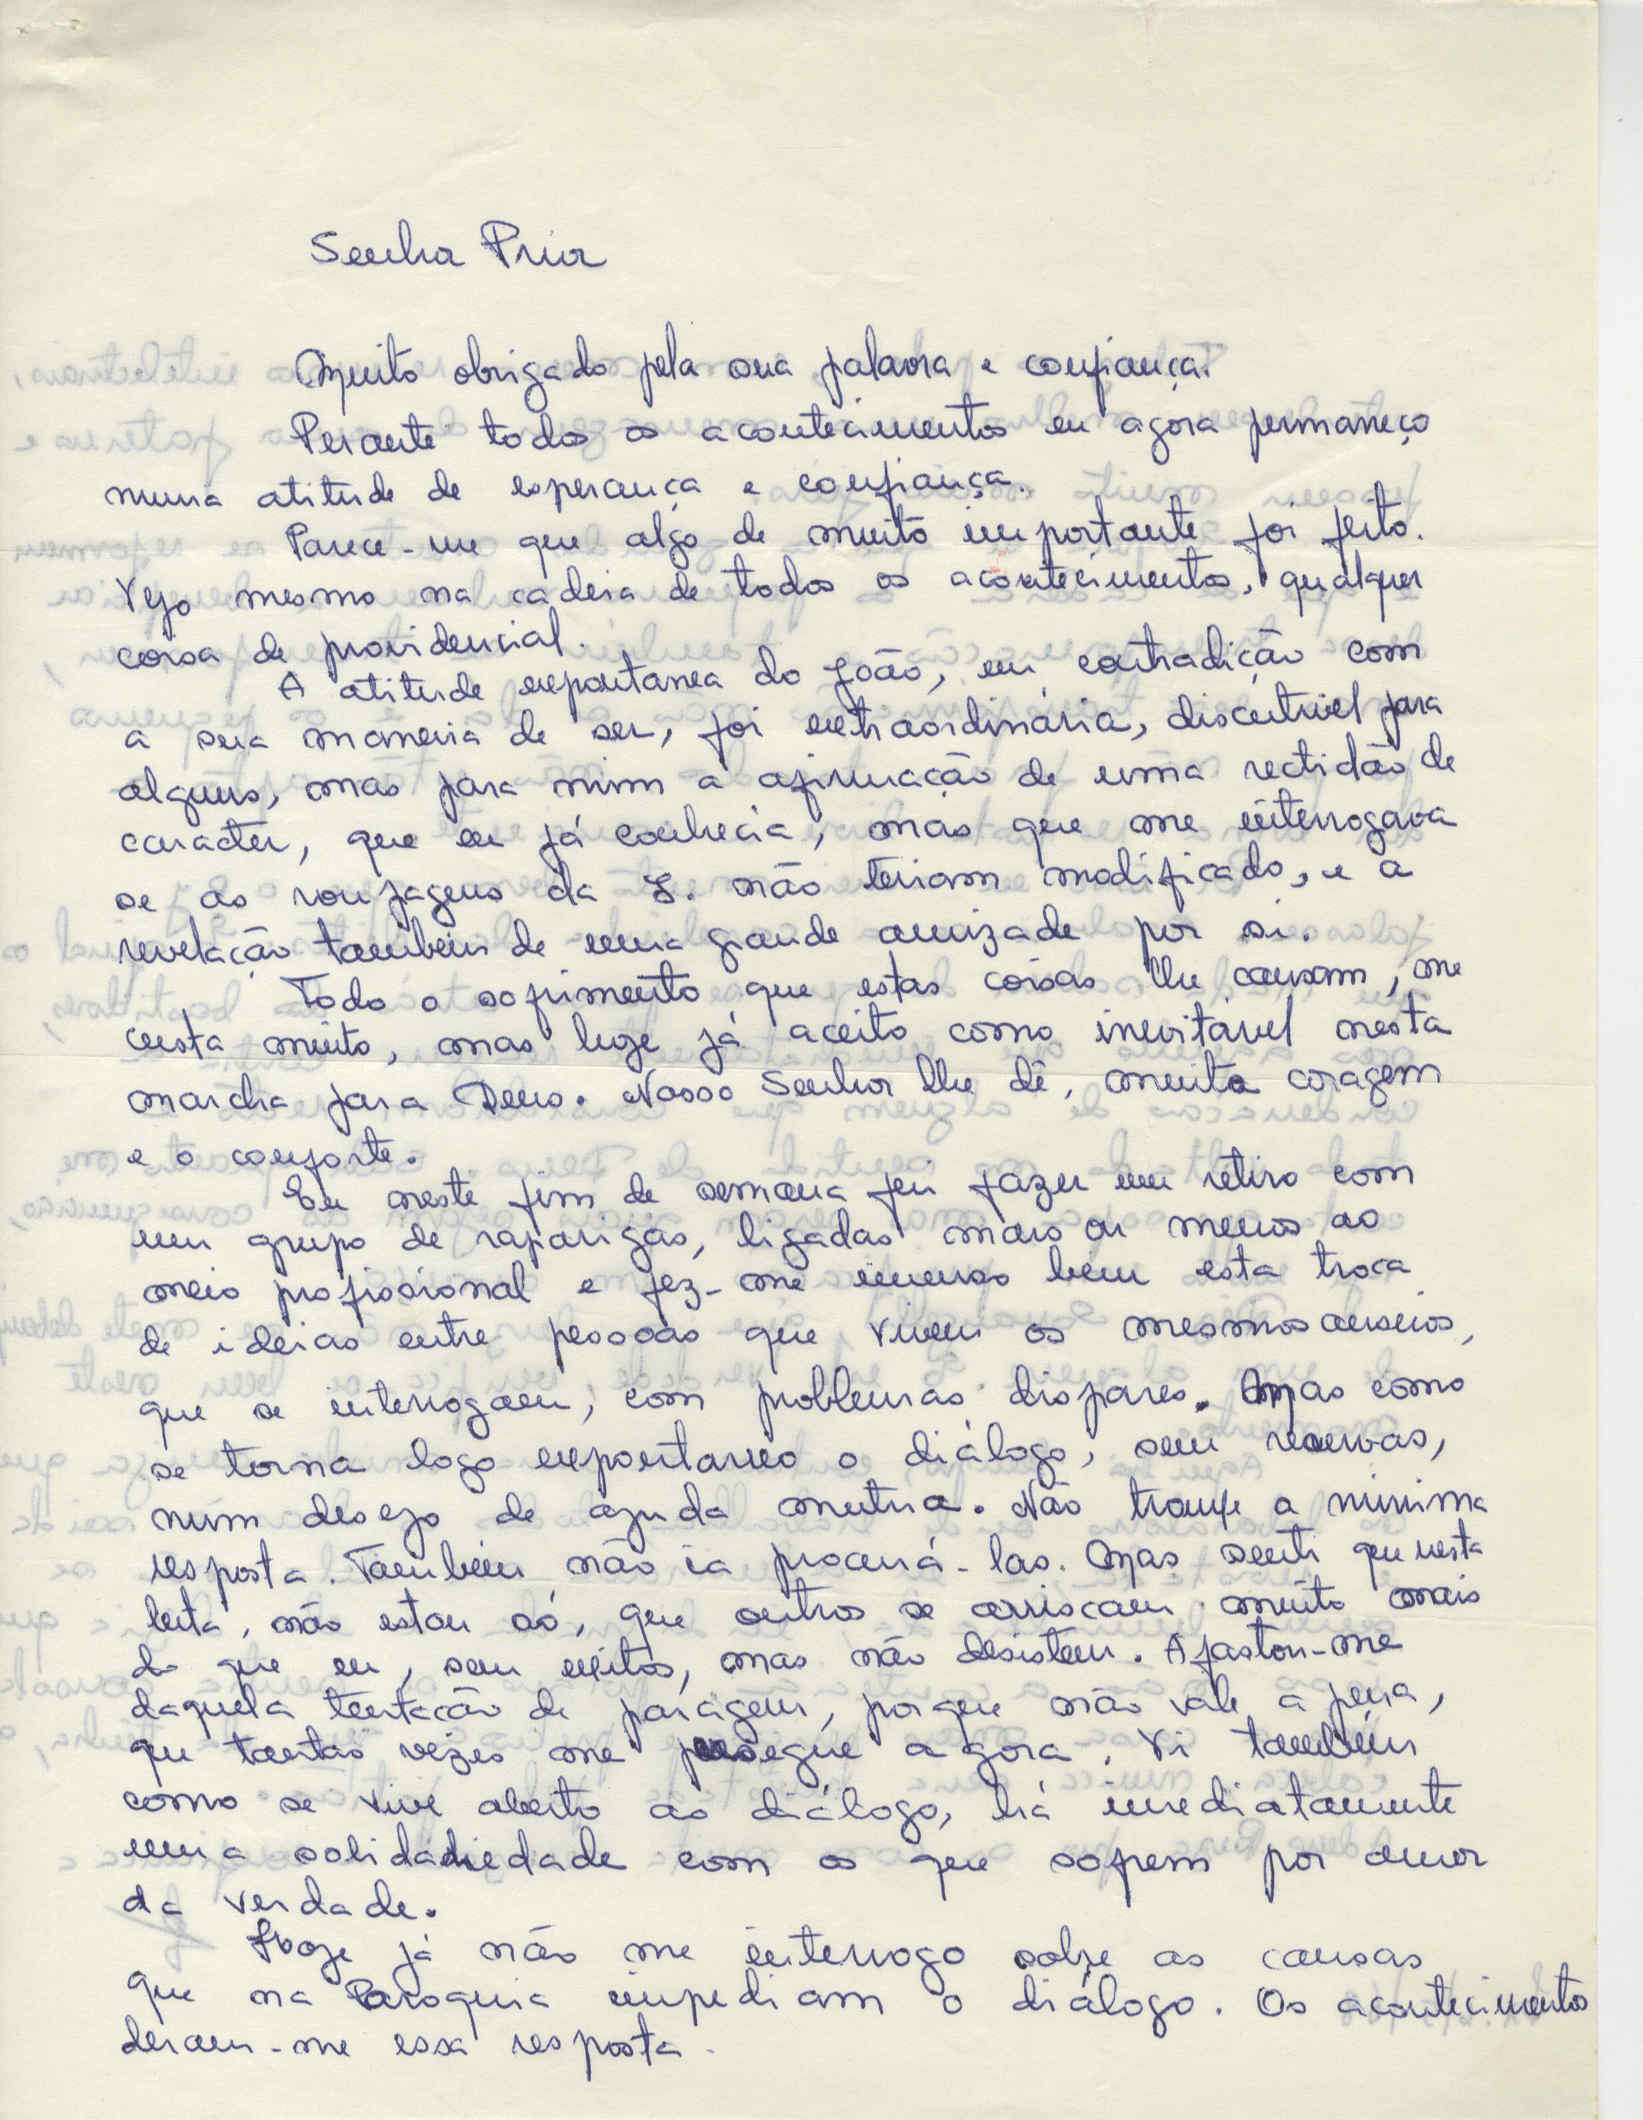 Senhor Prior
Muito obrigado pela sua palavra e confiança.
Perante todos os acontecimentos eu agora permaneço
numa atitude de esperança e confiança.
Parece-me que algo de muito importante foi feito.
Vejo mesmo na cadeia de todos os acontecimentos, qualquer
coisa de providencial.
A atitude expontanea do João, em contradição com
a sua maneira de ser, foi extraordinária, discutivel para
alguns, mas para mim a afirmação de uma rectidão de
caracter, que eu já conhecia, mas que me interrogava
se as roupagens da J. não teriam modificado, e a
revelação também de uma grande amizade por si.
Todo o sofrimento que estas coisas lhe causam, me
custa muito, mas hoje já aceito como inevitavel nesta
marcha para Deus. Nosso Senhor lhe dê, muita coragem
e o conforte.
Eu neste fim de semana fui fazer um retiro com
um grupo de raparigas, ligadas mais ou menos ao
meio profissional e fez-me imenso bem esta troca
de ideias entre pessoas que vivem os mesmos anseios,
que se interrogam, com problemas dispares. Mas como
se torna logo expontaneo o diálogo, sem reservas,
num desejo de ajuda mutua. Não trouxe a minima
resposta. Também não ia procurá-las. Mas senti que nesta
luta, não estou só, que outros se arriscam muito mais
do que eu, sem exitos, mas não desistem. Afastou-me
daquela tentação de paragem, porque não vale a pena,
que tantas vezes me persegue agora. Vi também
como se vive aberto ao diálogo, há imediatamente
uma solidariedade com os que sofrem por amor
da verdade.
Hoje já não me interrogo sobre as causas
que na Paroquia impediam o diálogo. Os acontecimentos
deram-me essa resposta.